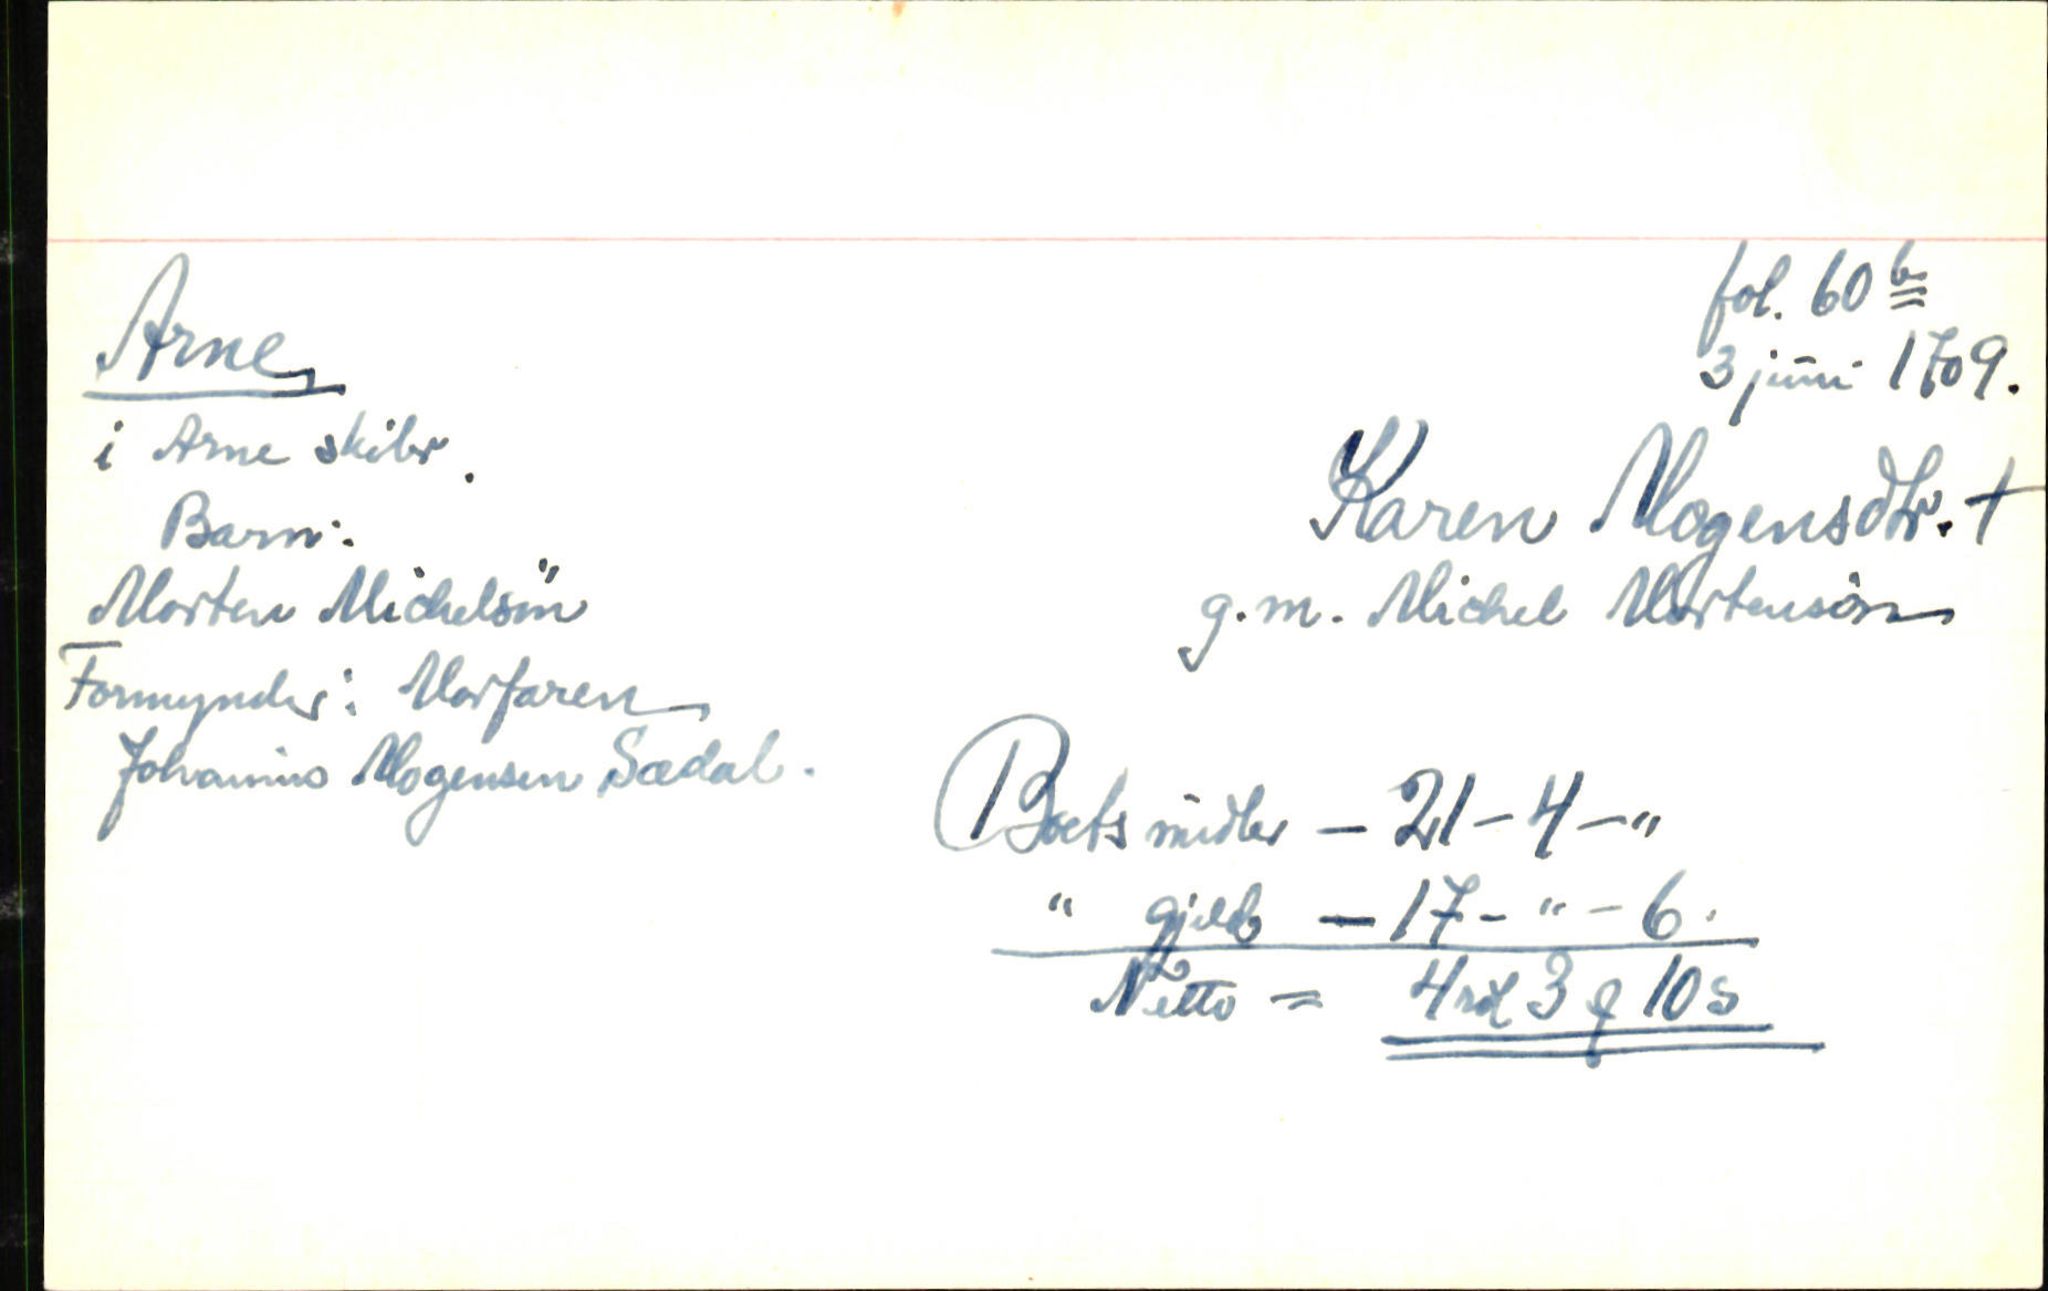 fol. 60 b
3 juni 1709.
Arne
i Arne skibr.
Karen Mogensdtr. †
g.m. Michel Mortensøn
Barn:
Morten Michelsön
Formynder: Morfaren
Johannes Mogensen Sædal.
Boets midler – 21 – 4 – "
" gjeld – 17 – " – 6.
Netto = 4 rd 3 ƍ 10 s